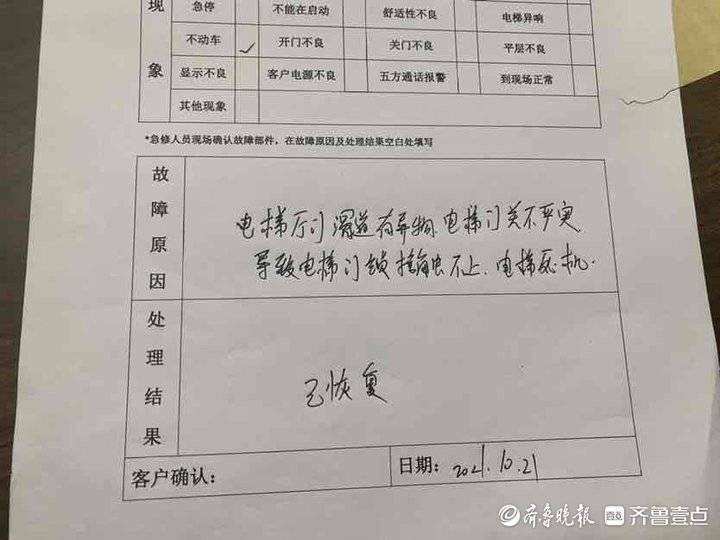 现象
急停 不能在启动 舒适性不良 电梯异响
不动车 ✓ 开门不良 关门不良 平层不良
显示不良 客户电源不良 五方通话报警 到现场正常
其他现象
*急修人员现场确认故障部件，在故障原因及处理结果空白处填写
故障原因
电梯厅门滑道有异物,电梯门关不严实
导致电梯门锁接触不上.电梯死机.
处理结果
已恢复
客户确认： 日期：2021.10.21
齐鲁晚报 壹点 齐鲁壹点